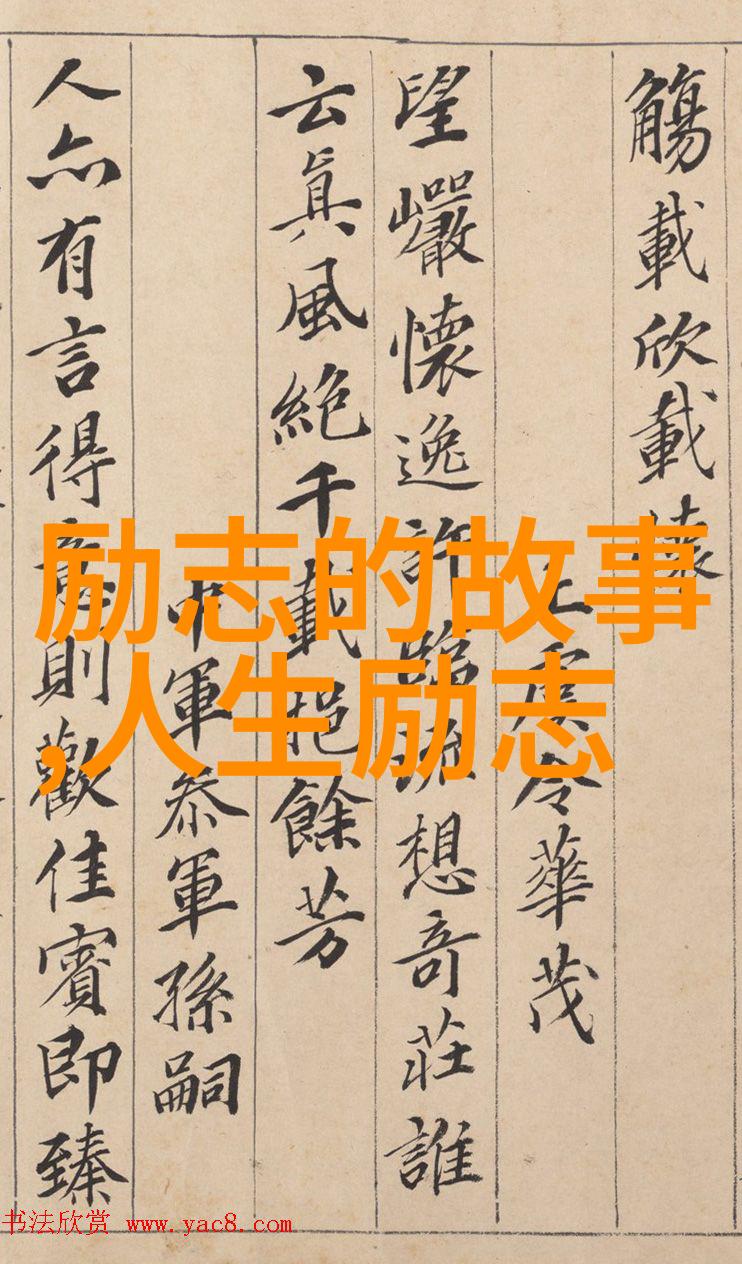 觴載欣載懷
上虞令華茂
望巖懷逸許臨流想奇莊誰
云眞風絶千載挹餘芳
中軍叅軍孫嗣
人亦有言得意則歡佳賓即臻
励志的故事
,人生励志
书法欣赏 www.yac8.com